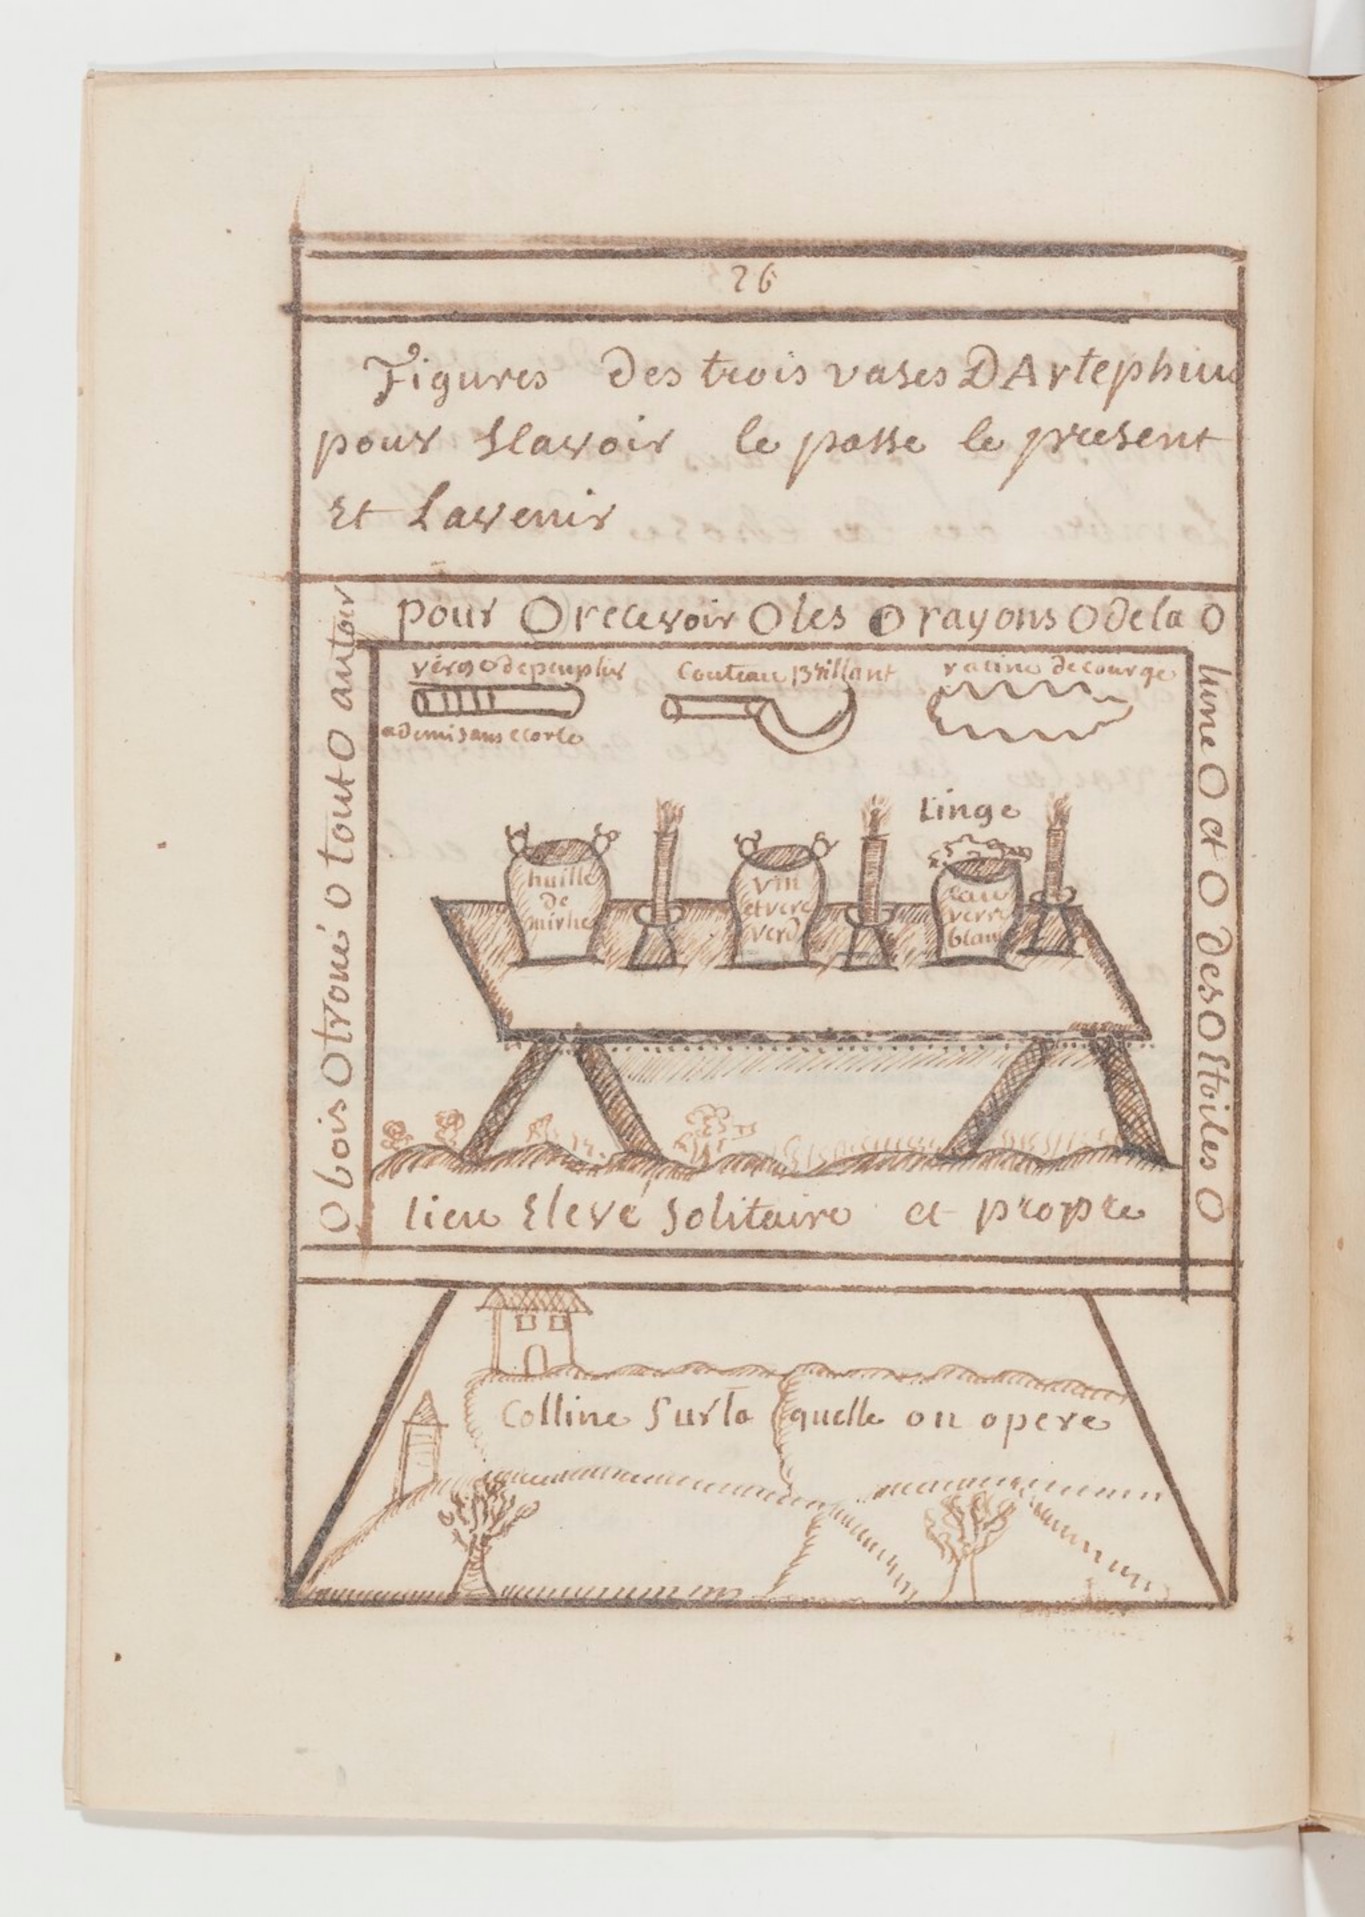 26
Figures des trois vases DArtephius
pour Scavoir le passe le present
Et Lavenir
pour O recevoir O les O rayons O de la O
lune O et O des O Etoiles O
O bois O troué O tout O autour
verge de peuplier
a demi sans ecorce
Couteau Brillant
racine de courge
Linge
huille
de
mirhe
vin
et vere
verd
eau
verre
blanc
lieu Elevé Solitaire et propre
Colline Sur la quelle on opere